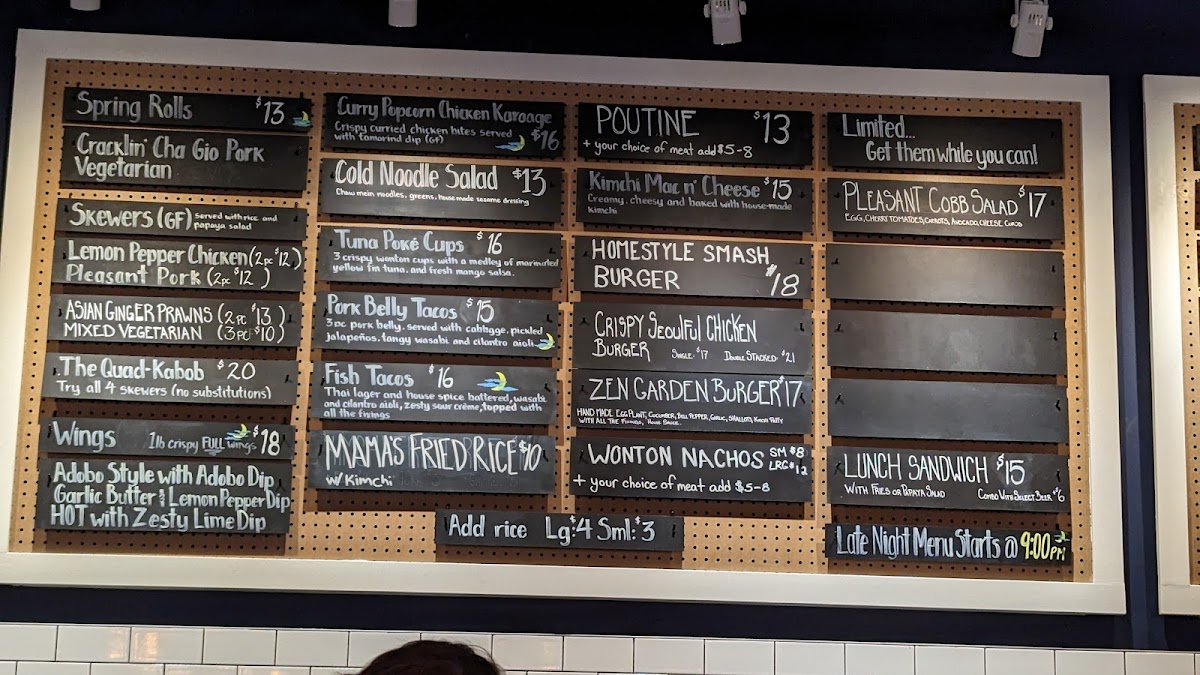 Spring Rolls $13
Cracklin' Cha Gio Pork
Vegetarian
Skewers (GF) served with rice and
papaya salad
Lemon Pepper Chicken (2pc $12)
Pleasant Pork (2pc $12)
ASIAN GINGER PRAWNS (2 PC $13)
MIXED VEGETARIAN (3 PC $10)
The Quad-Kabob $20
Try all 4 skewers (no substitutions)
Wings 1lb crispy FULL wings $18
Adobo Style with Adobo Dip
Garlic Butter & Lemon Pepper Dip
HOT with Zesty Lime Dip
Curry Popcorn Chicken Karaage
Crispy curried chicken bites served
with tamarind dip (GF) $16
Cold Noodle Salad $13
Chow mein noodles, greens, house made sesame dressing
Tuna Poké Cups $16
3 crispy wonton cups with a medley of marinated
yellow fin tuna, and fresh mango salsa.
Pork Belly Tacos $15
3pc pork belly, served with cabbage, pickled
jalapeños, tangy wasabi and cilantro aioli
Fish Tacos $16
Thai lager and house spice battered, wasabi
and cilantro aioli, zesty sour crème, topped with
all the fixings
MAMA'S FRIED RICE $10
w/ Kimchi
Add rice Lg:$4 Sml:$3
POUTINE $13
+ your choice of meat add $5-8
Kimchi Mac n' Cheese $15
Creamy, cheesy and baked with house-made
kimchi
HOMESTYLE SMASH
BURGER $18
CRISPY SEOULFUL CHICKEN
BURGER SINGLE: $17 DOUBLE STACKED: $21
ZEN GARDEN BURGER $17
HAND MADE EGGPLANT, CUCUMBER, BELL PEPPER, GARLIC, SHALLOTS, PATTY
WITH ALL THE FIXINGS, HOUSE SAUCE.
WONTON NACHOS SM $8
LRG $12
+ your choice of meat add $5-8
Limited...
Get them while you can!
PLEASANT COBB SALAD $17
EGG, CHERRY TOMATOES, CARROTS, AVOCADO, CHEESE CURDS
LUNCH SANDWICH $15
WITH FRIES OR PAPAYA SALAD COMBO WITH SELECT BEER $6
Late Night Menu Starts @ 9:00PM